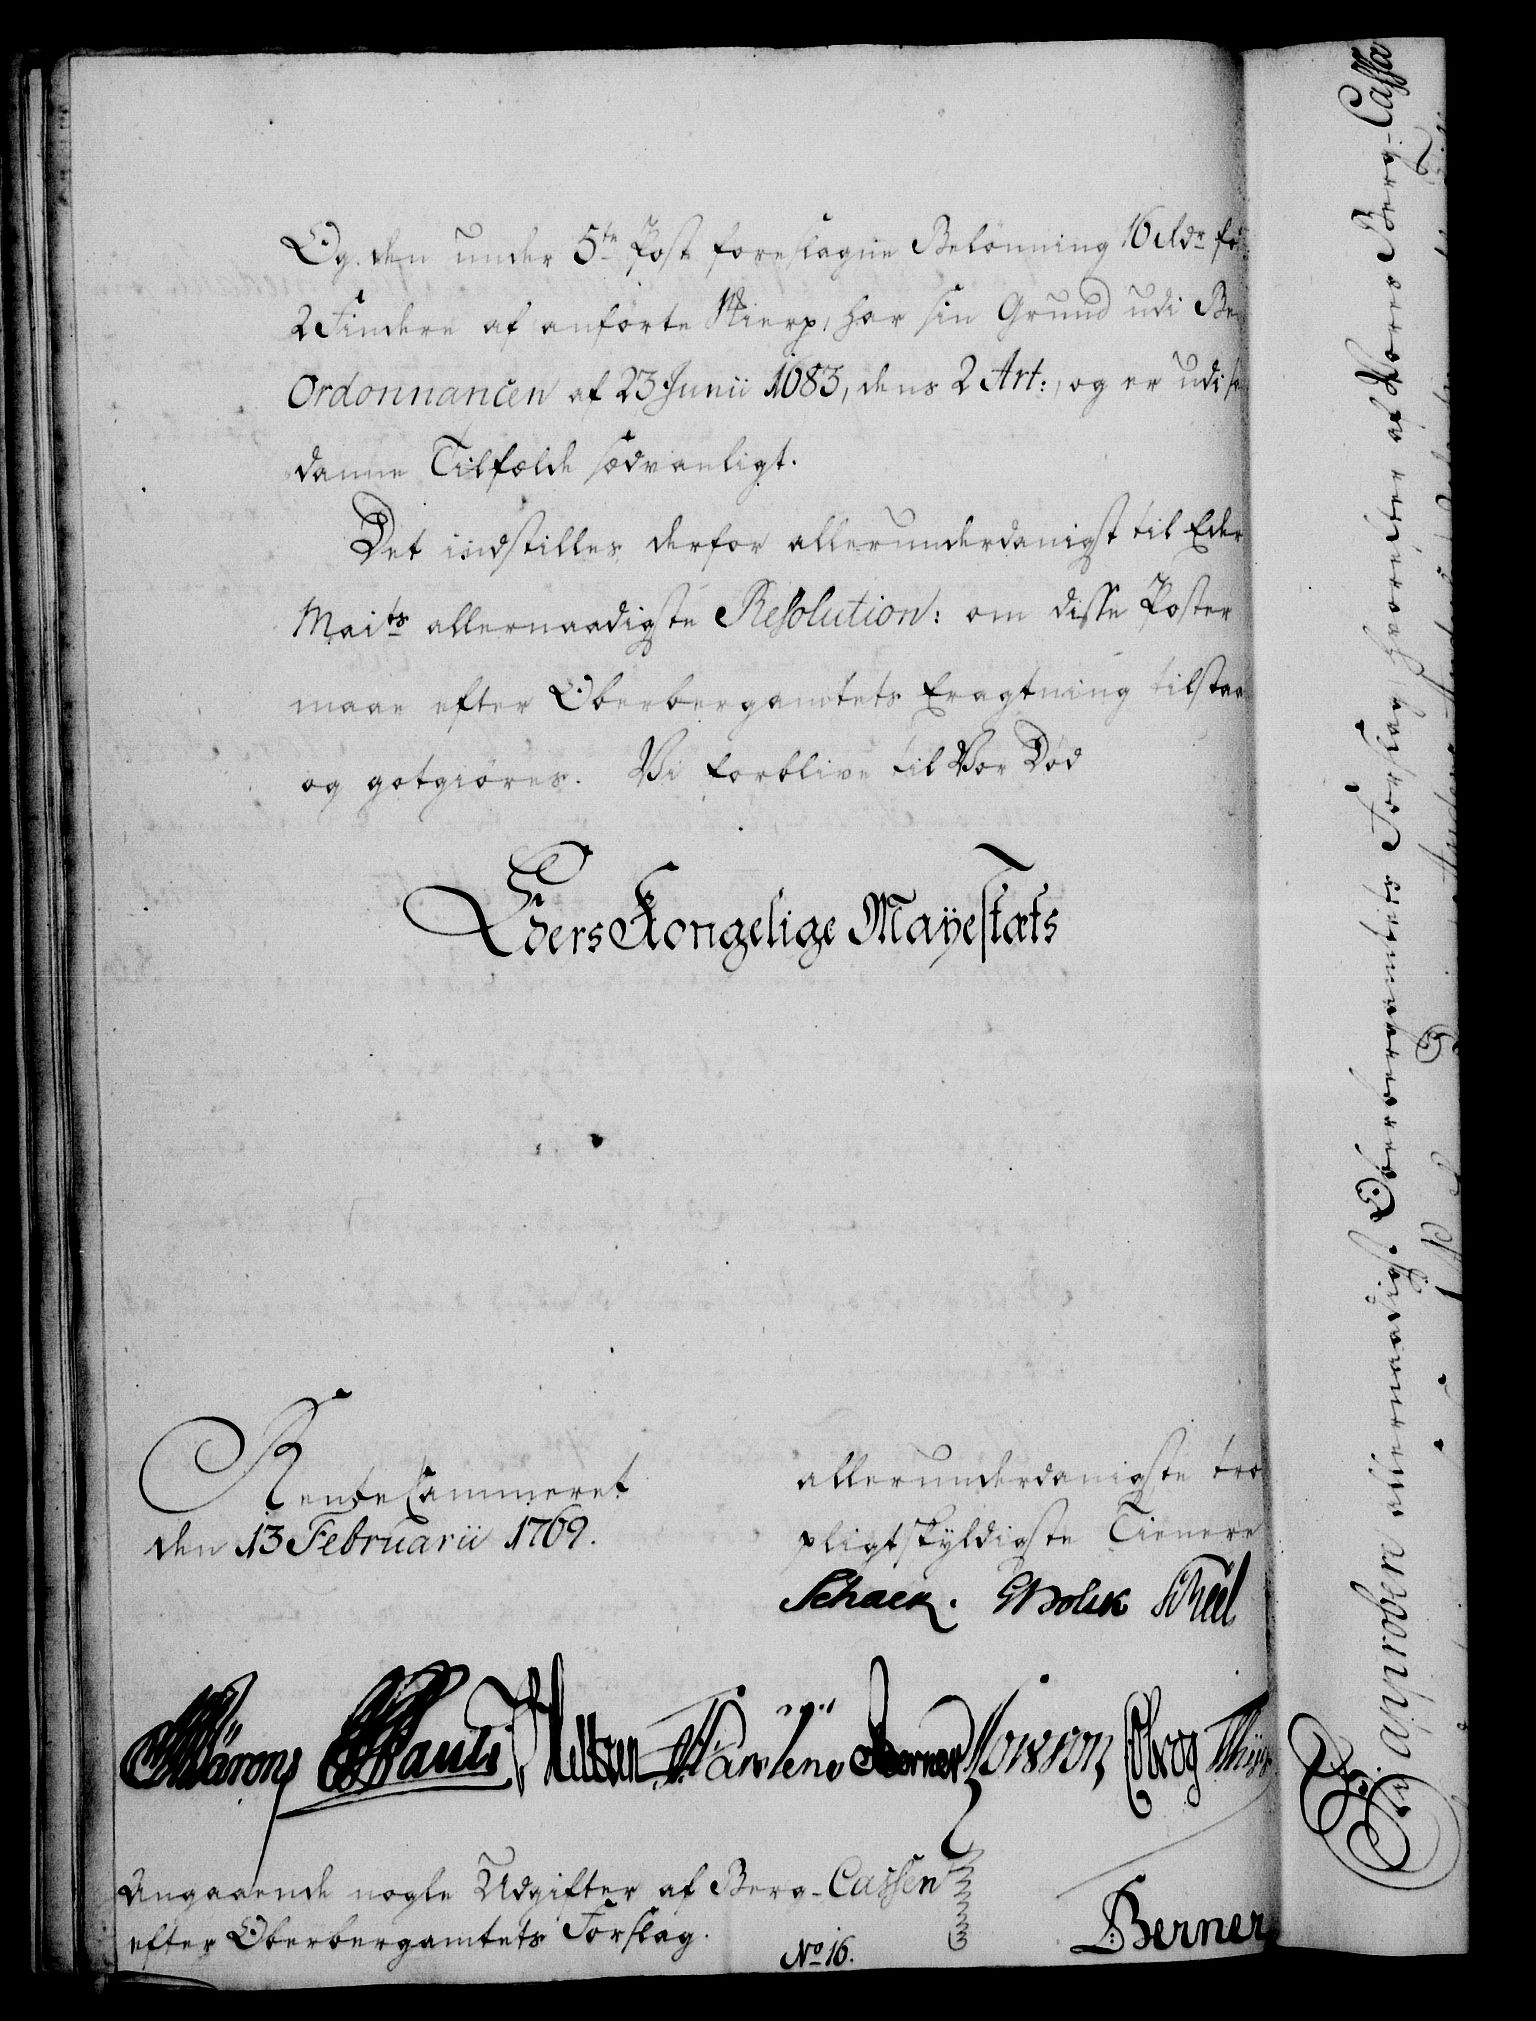 Og den under 5te Post foreslagne Belønning 16 Rdr for
2 Findere af anførte Skierp, har sin Grund udi Be
Ordonnancen af 23 Junii 1683, dens 2 Art:, og er udi saa
danne Tilfælde sædvanligt.
Det indstilles derfor allerunderdanigst til Eders
Maits allernaadigste Resolution: om disse Poster
maae efter Oberbergamtets Eragtning tilstaa
og gotgiøres. Vi forblive til Vor Død
Eders Kongelige Mayestæts
RenteCammeret
den 13 Februarii 1769.
allerunderdanigste tro
pligtskyldigste Tienere
Schack. Scheel
Pauli Berner
Angaaende nogle Udgifter af Berg-Cassen
efter Oberbergamtets Forslag.
No 16.
Berner
Vi approbere allernaadigst Oberbergamtets Forslag, hvorefter af Vores Berg-Cassa